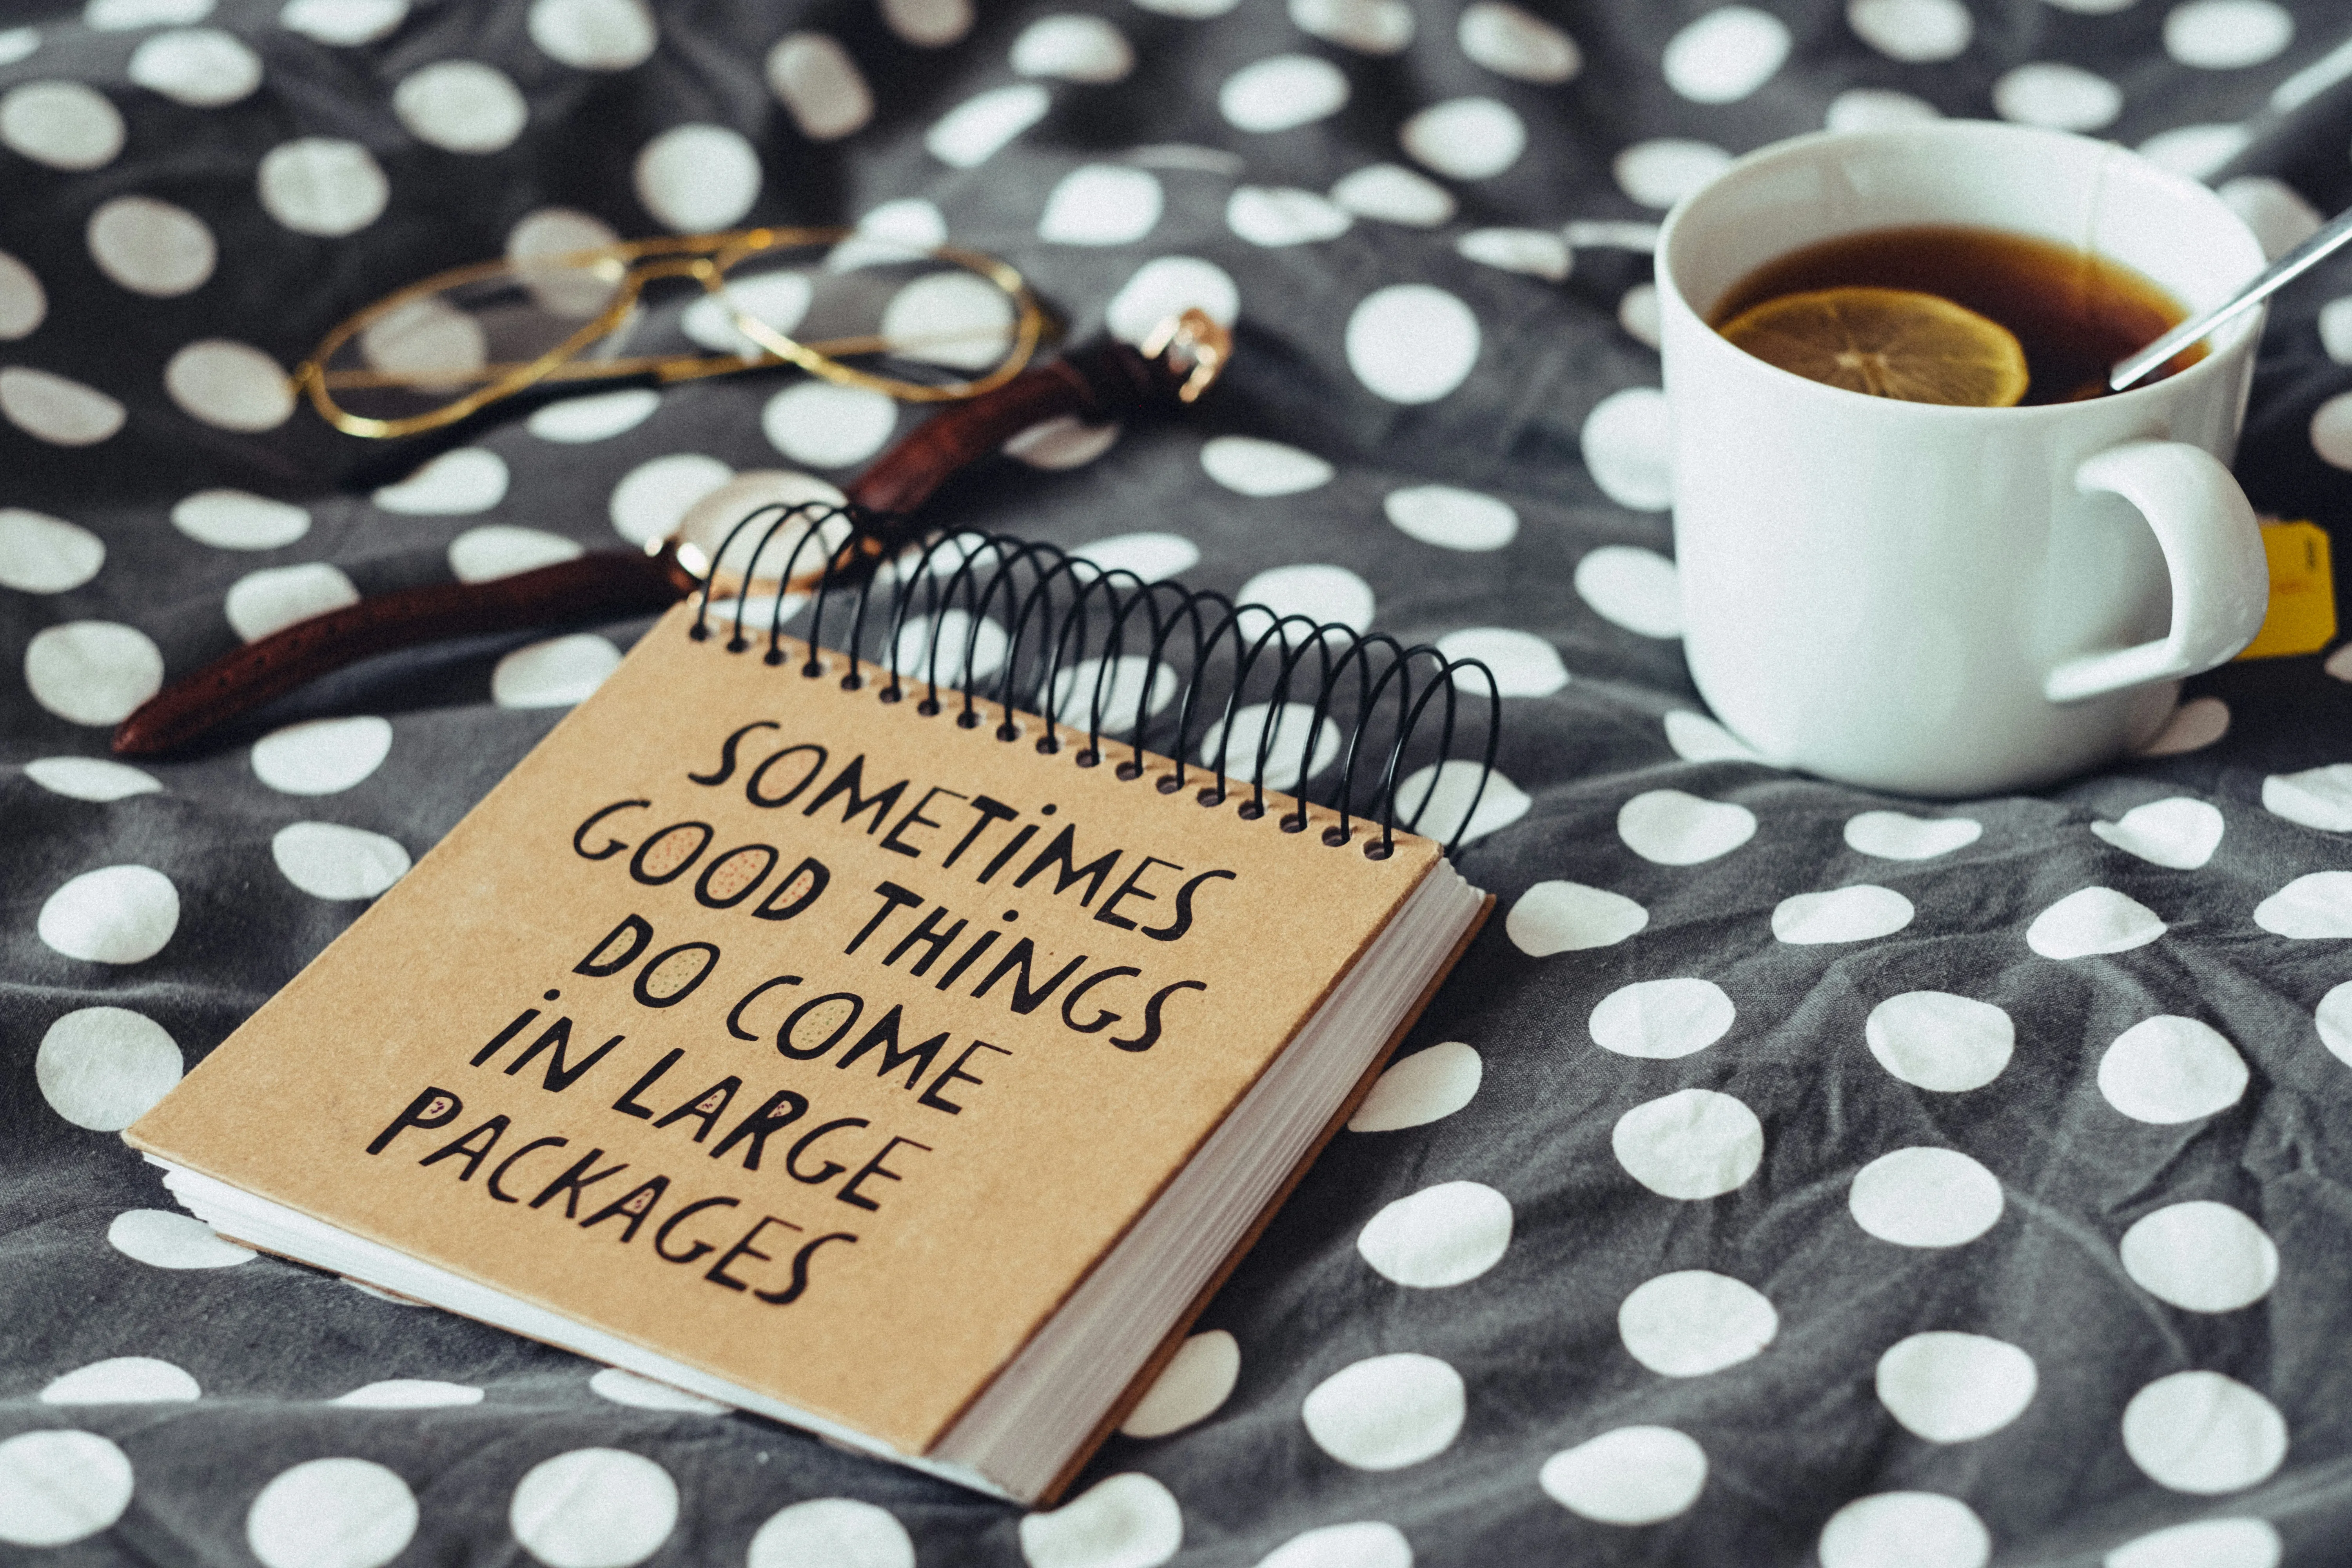 SOMETIMES
GOOD THINGS
DO COME
iN LARGE
PACKAGES